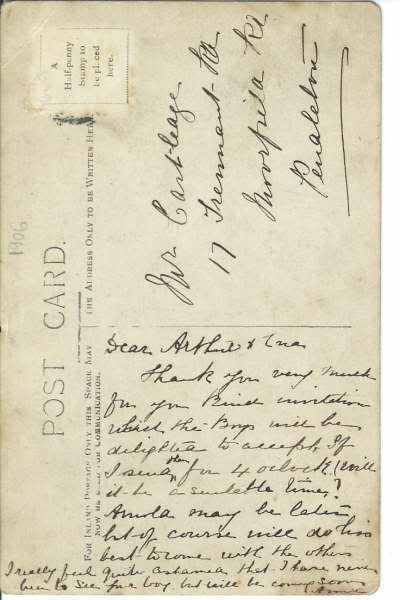 A
Half-penny
Stamp to
be placed
here.
1906
POST CARD.
THE ADDRESS ONLY TO BE WRITTEN HERE
FOR INLAND POSTAGE ONLY THIS SPACE MAY
NOW BE USED FOR COMMUNICATION.
Mr Cartleage
17 Tennant Rd
Moorfield Rd
Pendleton
Dear Arthur &
Thank you very much
for your kind invitation
which the Boys will be
delighted to accept. If
I send them for 4 oclock, will
it be a suitable time?
may be later
but of course will do his
best to come with the others
I really feel quite ashamed that I have never
been to see your boy, but will be coming soon
Annie